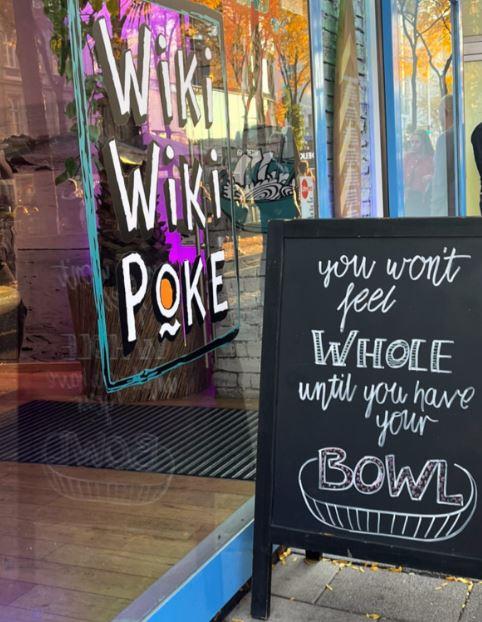 Wiki
Wiki
POKE
you won't
feel
WHOLE
until you have
your
BOWL